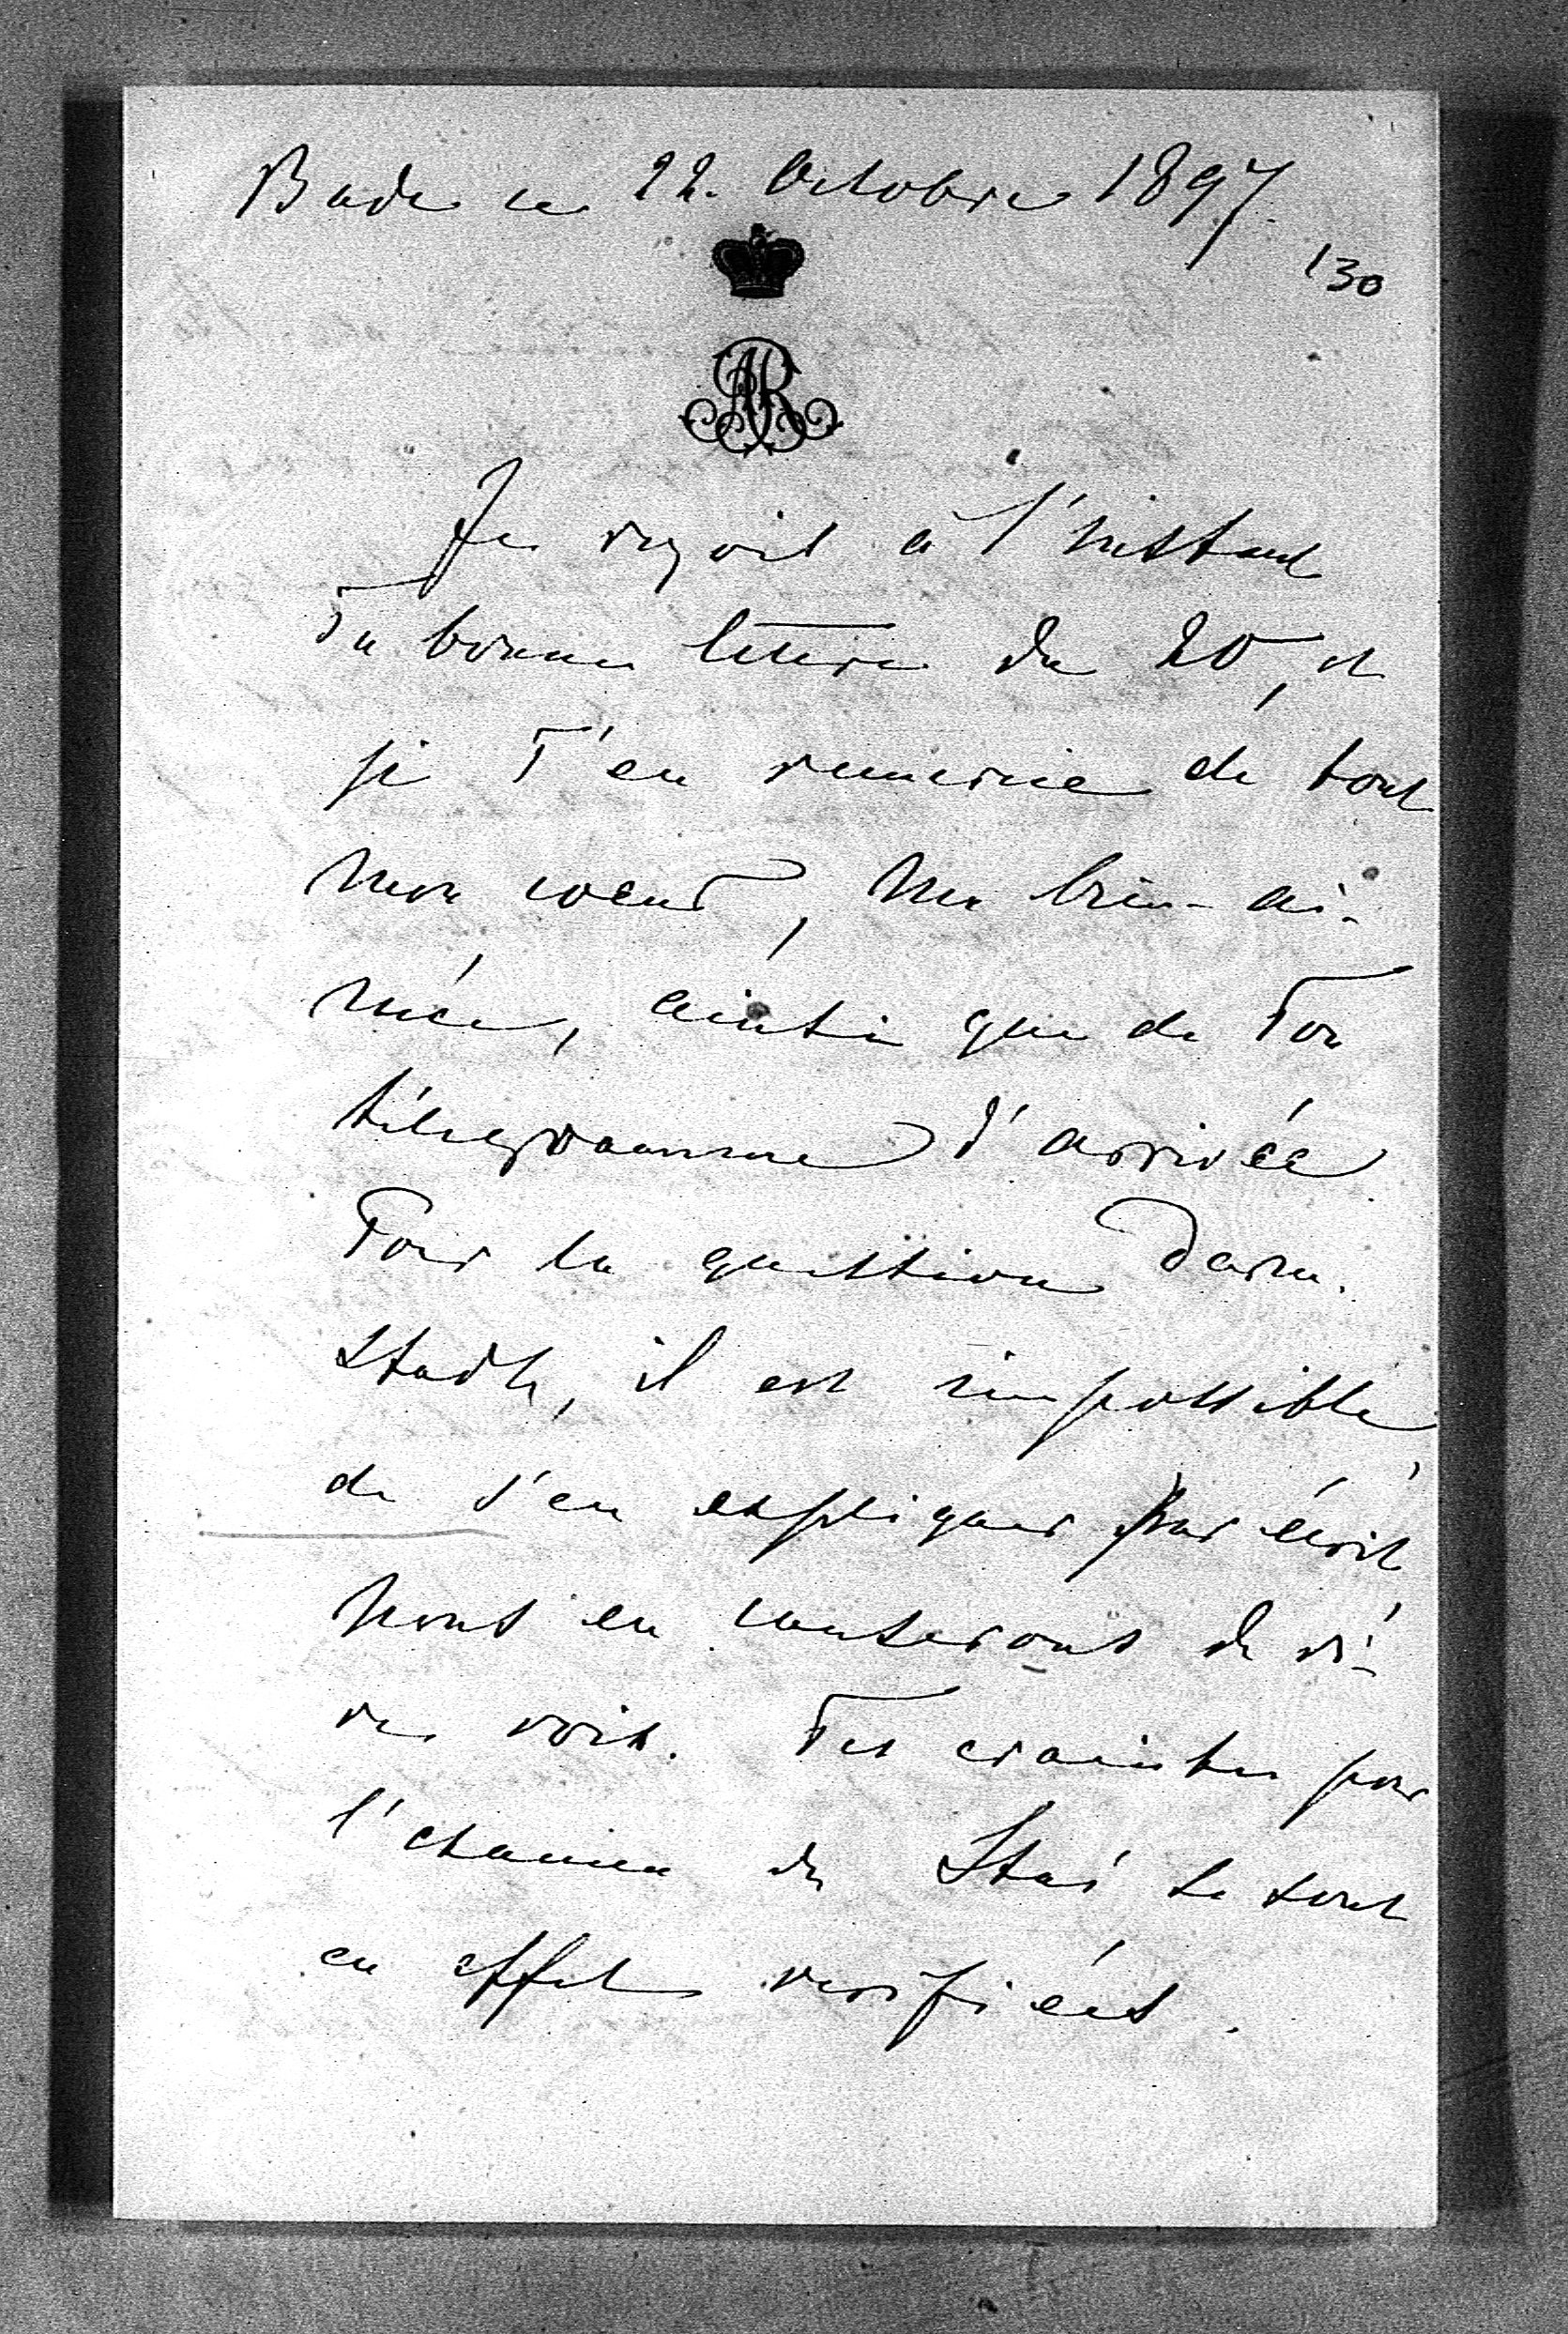 Bade ce 22. Octobre 1897.
130
AR
Je reçois à l'instant
Ta bonne lettre du 20, et
je T'en remercie de tout
mon coeur, ma bien-ai-
mée, ainsi que de Ton
télégramme d'arrivée.
Pour la question Darm-
stadt, il est impossible
de s'en expliquer par écrit,
nous en causerons de vi-
ve voix. Tes craintes pour
l'examen de Stas se sont
en effet verifiées.